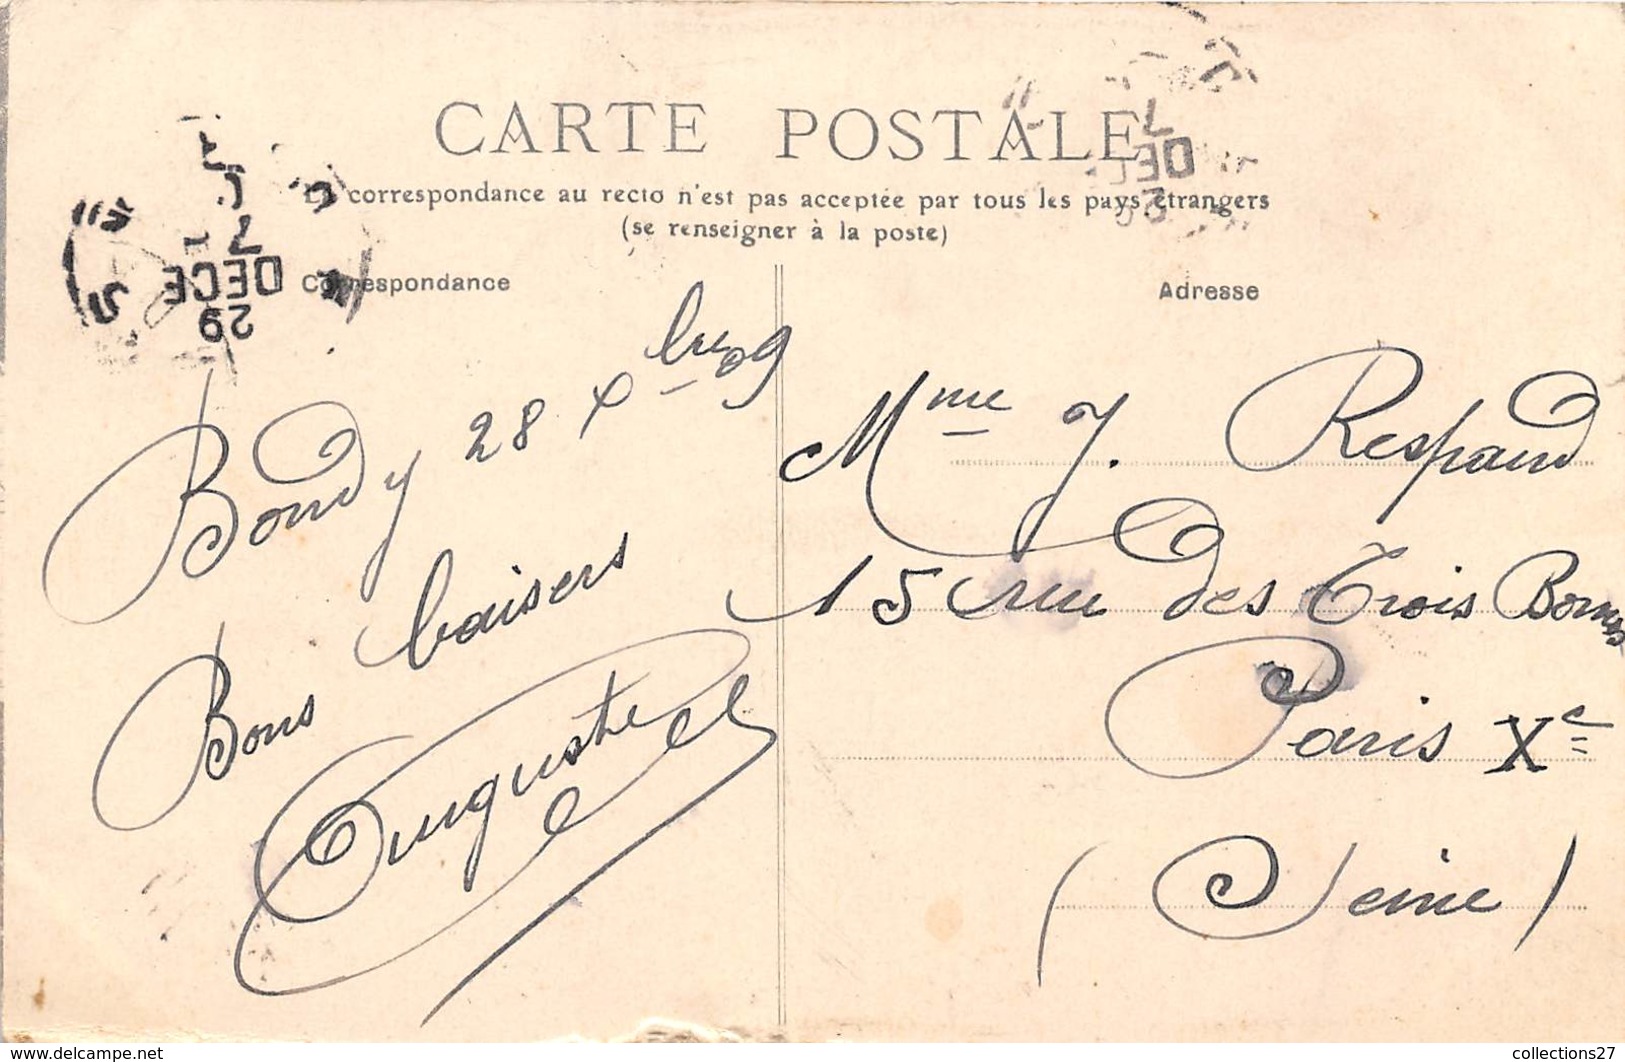 CARTE POSTALE
La correspondance au recto n'est pas acceptée par tous les pays étrangers
(se renseigner à la poste)
Correspondance
Adresse
29
DECE
7
DECE
7
Bondy 28 Xbre 09
Bons baisers
Auguste
Mme J. Respaud
15 rue des Trois Bornes
Paris Xe
(Seine)
www.delcampe.net
collections27